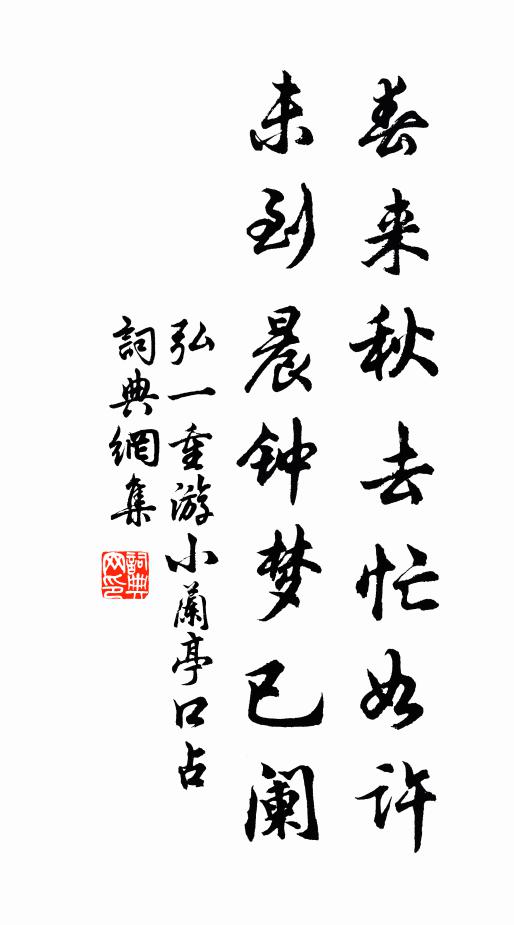 春来秋去忙如许
未到晨钟梦已阑
弘一重游小蘭亭口占
詞典網集
詞典网印